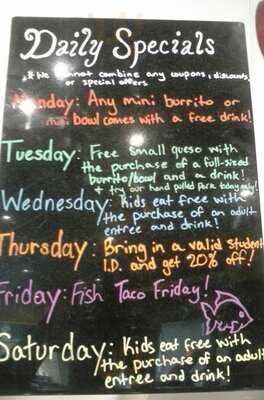 Daily Specials
* We cannot combine any coupons, discounts,
or special offers
Monday: Any mini burrito or
mini bowl comes with a free drink!
Tuesday: Free small queso with
the purchase of a full-sized
burrito/bowl and a drink!
+ try our hand pulled pork today only!
Wednesday: Kids eat free with
the purchase of an adult
entree and drink!
Thursday: Bring in a valid student
I.D. and get 20% off!
Friday: Fish Taco Friday!
Saturday: Kids eat free with
the purchase of an adult
entree and drink!